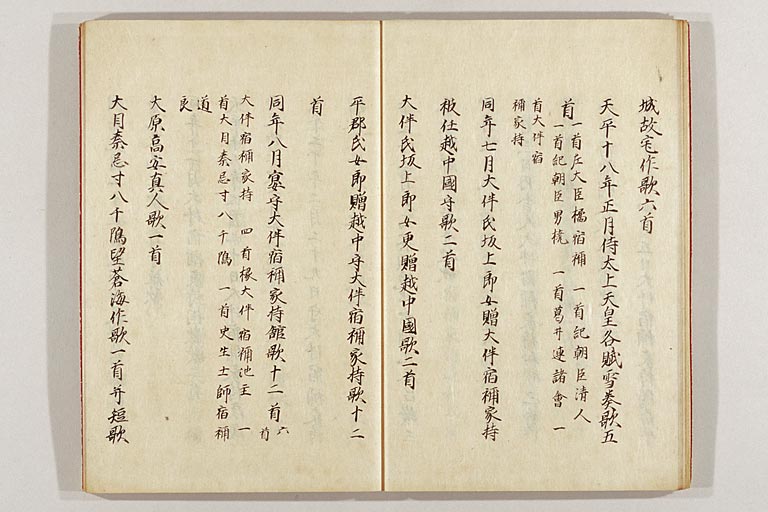 城故宅作歌六首
天平十八年正月侍太上天皇各賦雪奏歌五
首
一首左大臣橘宿祢 一首紀朝臣清人
一首紀朝臣男梶 一首葛井連諸會 一
首大伴宿
祢家持
同年七月大伴氏坂上郎女贈大伴宿祢家持
被仕越中國守歌二首
大伴氏坂上郎女更贈越中國歌二首
平郡氏女郎贈越中守大伴宿祢家持歌十二
首
同年八月宴守大伴宿祢家持舘歌十二首
六
首
大伴宿祢家持 四首掾大伴宿祢池主 一
首大目秦忌寸八千嶋 一首史生土師宿祢
道
良
大原高安真人歌一首
大目秦忌寸八千嶋望蒼海作歌一首并短歌